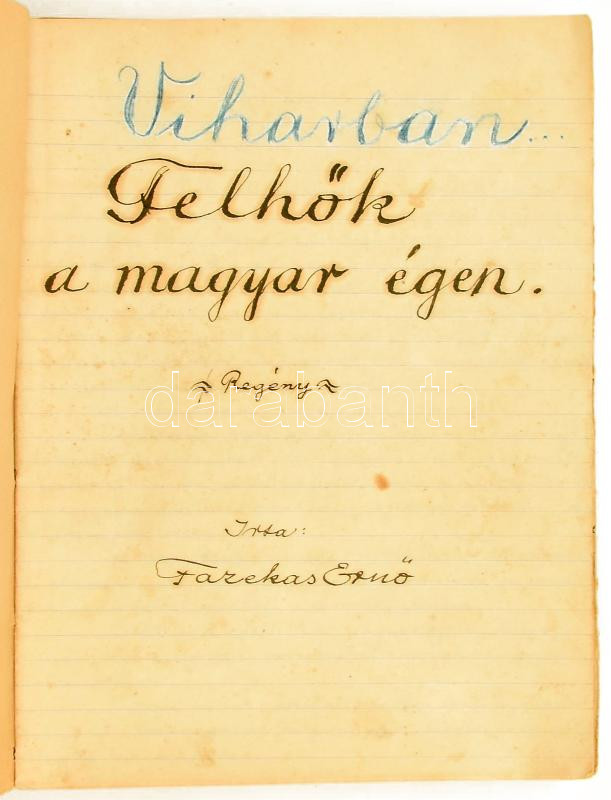 Viharban...
Felhők
a magyar égen.
~ Regény ~
darabanth
Irta:
Fazekas Ernő